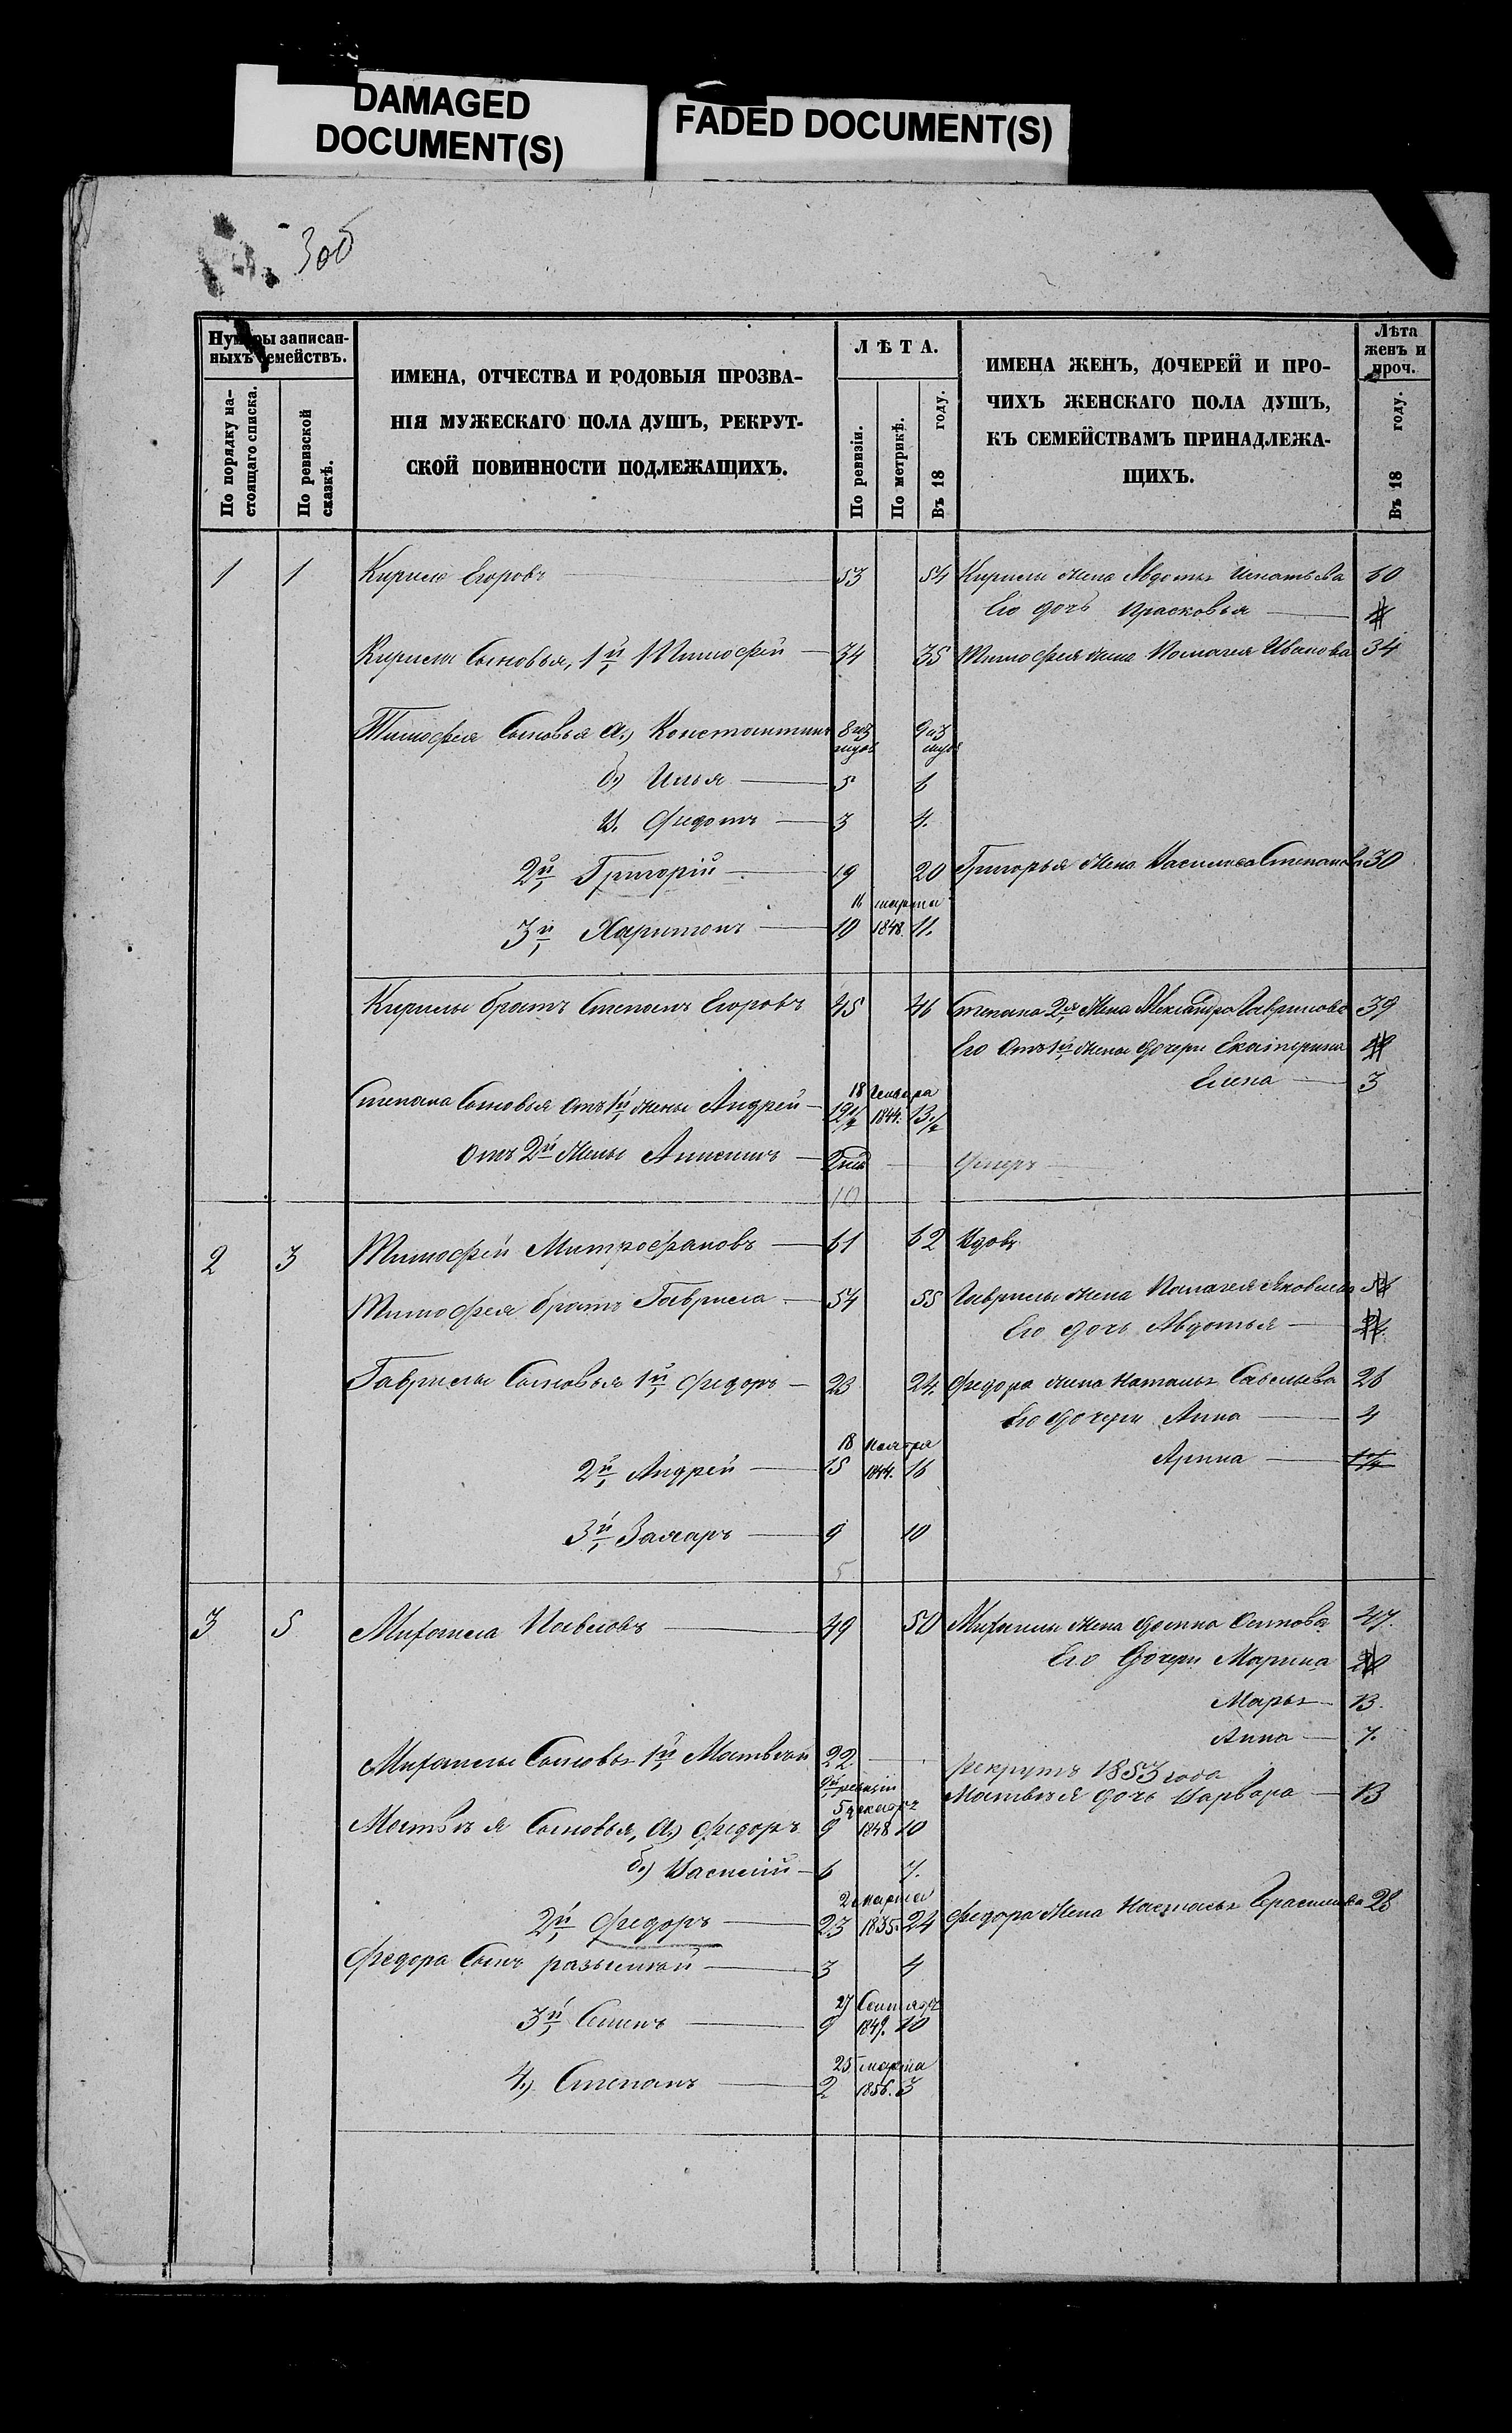 DAMAGED
DOCUMENT(S)
FADED DOCUMENT(S)
306
Нумеры записан-
ныхъ семействъ.
По порядку на-
стоящаго списка.
По ревизской
сказкѣ.
ИМЕНА, ОТЧЕСТВА И РОДОВЫЯ ПРОЗВА-
НІЯ МУЖЕСКАГО ПОЛА ДУШЪ, РЕКРУТ-
СКОЙ ПОВИННОСТИ ПОДЛЕЖАЩИХЪ.
ЛѢТА.
По ревизіи.
По метрикѣ.
Въ 18 году.
ИМЕНА ЖЕНЪ, ДОЧЕРЕЙ И ПРО-
ЧИХЪ ЖЕНСКАГО ПОЛА ДУШЪ,
КЪ СЕМЕЙСТВАМЪ ПРИНАДЛЕЖА-
ЩИХЪ.
Лѣта
женъ и
проч.
Въ 18 году.
1 1 Кирила Егоровъ 53 54 Кирилы жена Авдотья Игнатьева 60
Его дочь Прасковья
Кирилы Сыновья, 1й Тимофѣй 34 35 Тимофея жена Пелагея Иванова 34
Тимофея Сыновья а.) Константинъ 8 9
б.) Илья 5 6
в. Федотъ 3 4.
2й Григорій 19 20 Григорья жена Василиса Степанова 30
16 марта
3й Харитонъ 10 1848. 11.
Кирилы братъ Степанъ Егоровъ 45 46 Степана 2я жена Александра Гаврилова 39
Его отъ 1й жены дочери Екатерина
Елена 3
18 Генваря
Степана Сыновья отъ 1й жены Андрей 12 1/2 1844. 13 1/2
отъ 2й жены Анисимъ умеръ
10
2 3 Тимофѣй Митрофановъ 61 62 Вдовъ
Тимофея братъ Гаврила 54 55 Гаврилы жена Пелагея Яковлева
Его дочь Авдотья
Гаврилы Сыновья 1й Федоръ 23 24. Федора жена Наталья Савельева 26
Его дочери Анна 4
18 Ноября
2й Андрей 15 1844. 16 Арина
3й Захаръ 9 10
5
3 5 Михаила Павловъ 49 50 Михаилы жена Фекла Осипова 47.
Его Дочери Марина
Марья 13.
Анна 7.
Михаилы Сыновья 1й Матвѣй 22 рекрутъ 1853 года
Матвѣя дочь Варвара 13
5 декабря
Матвѣя Сыновья, а.) Федоръ 9 1848 10
б.) Василій 6 7.
2 марта
2й Федоръ 23 1835. 24 Федора жена Наталья Герасимова 28
Федора Сынъ 3 4
27 Сентября
3й Семенъ 9 1849. 10
25 марта
4.) Степанъ 2 1856. 3